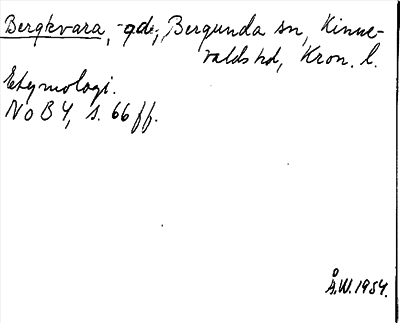 Bergkvara, -gde, Bergunda sn, Kinne-
valds hd, Kron. l.
Etymologi.
NoB 4, s. 66 ff.
Å.W. 1954.